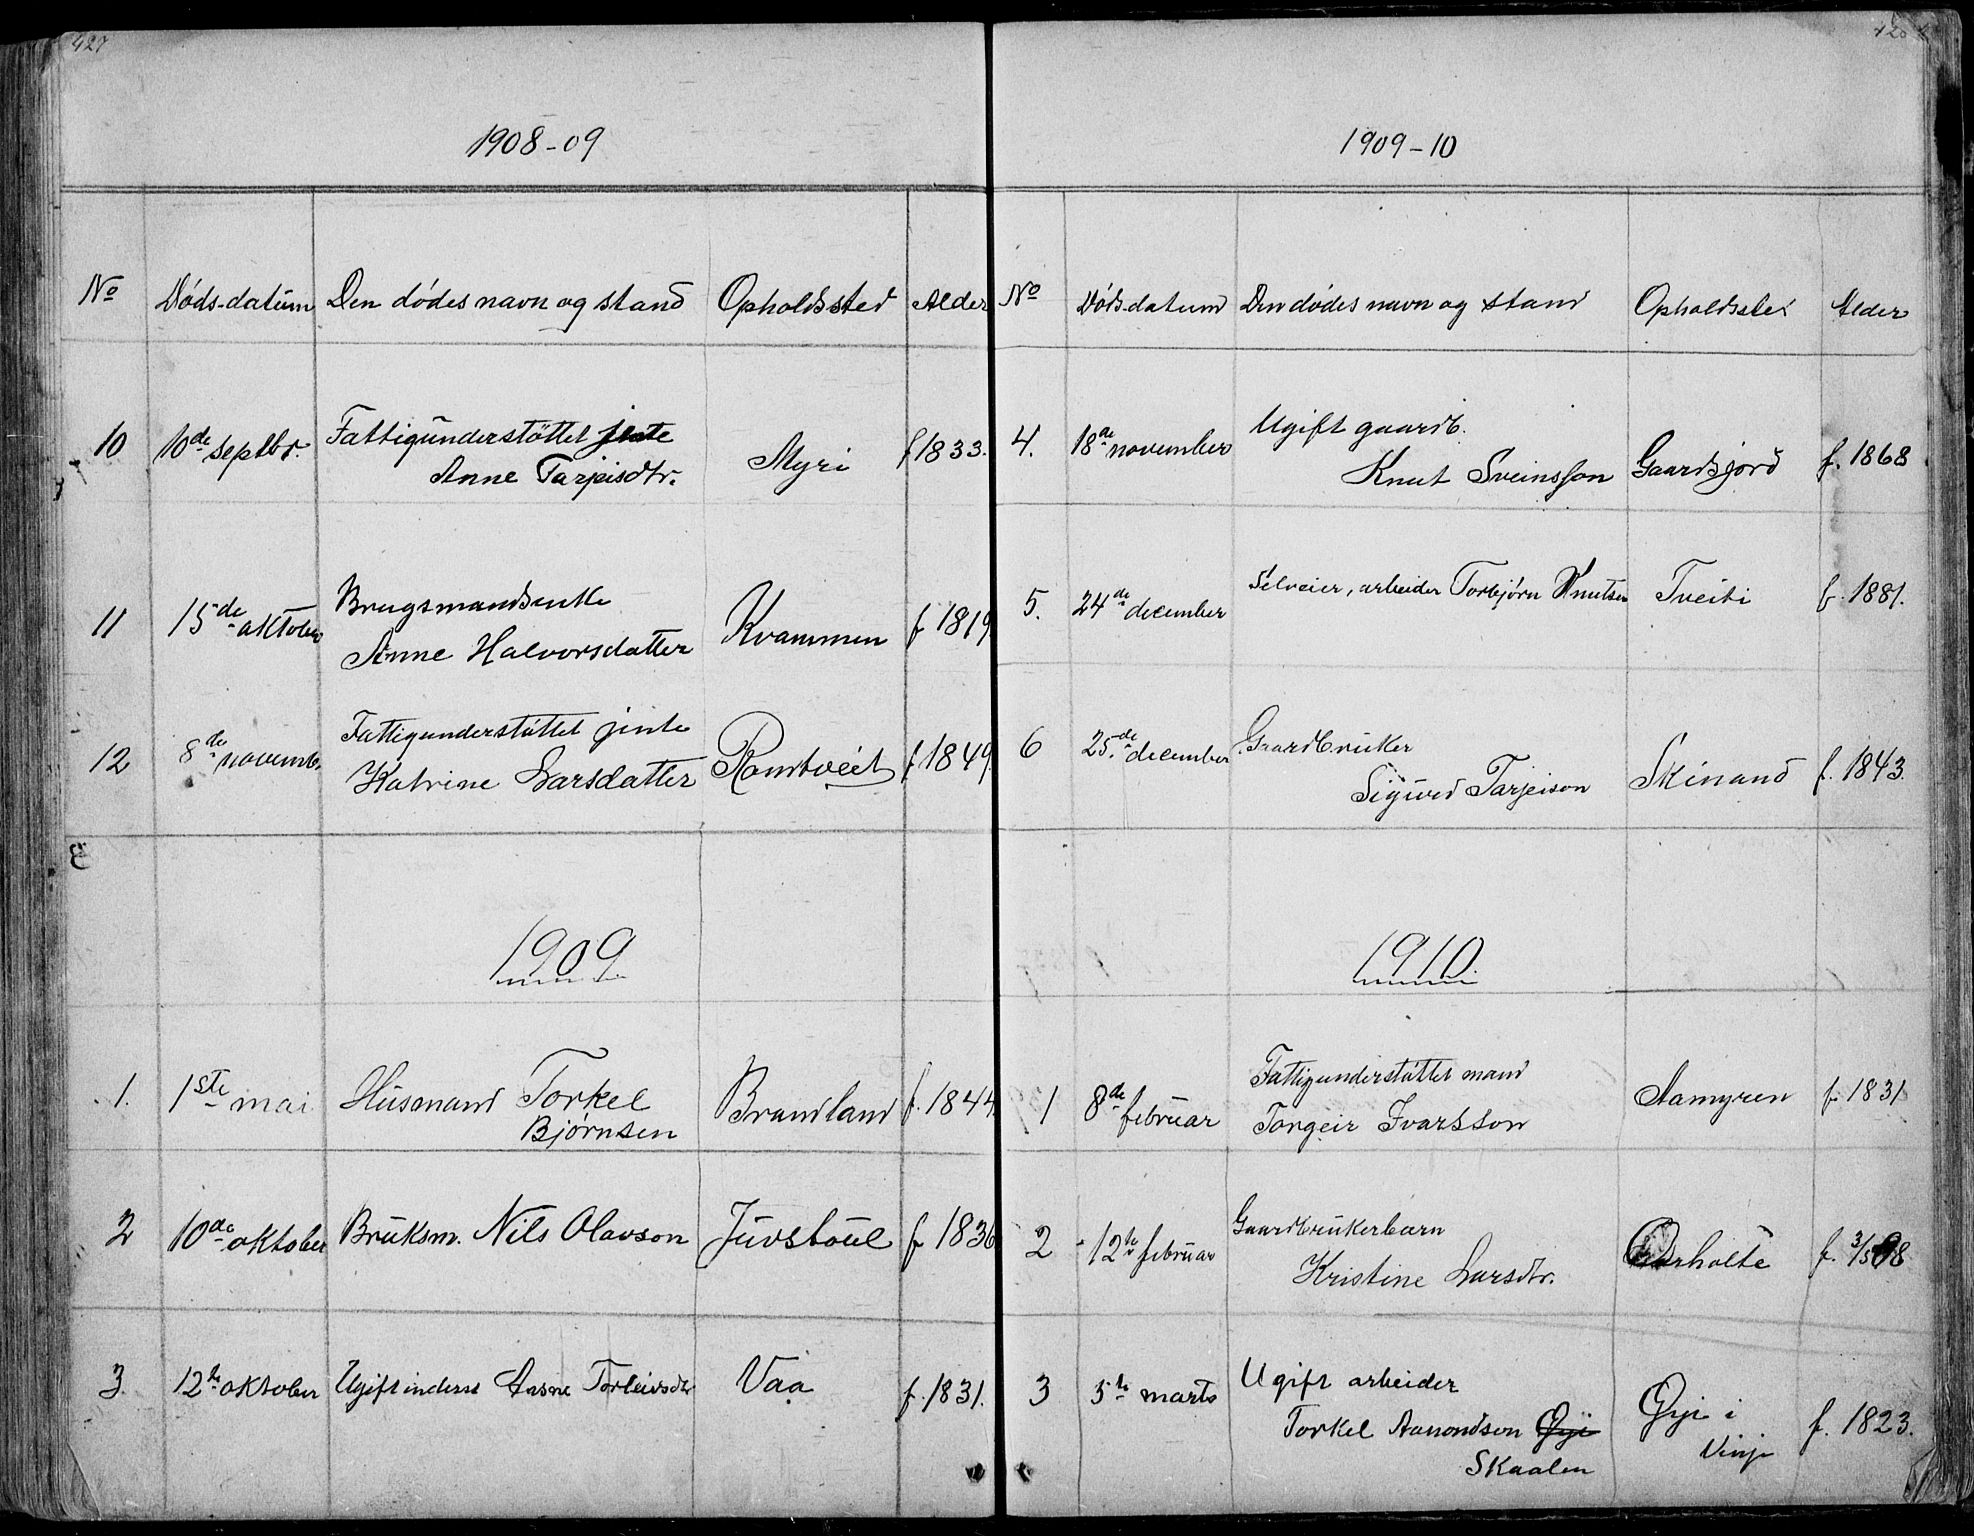 427
1908-09
No Døds-datum Den dødes navn og stand Opholdssted Alder
10 10de septbr. Fattigunderstøttet jente
Anne Tarjeisdtr. Myri f 1833.
11 15de oktober Brugsmandsenke
Anne Halvorsdatter Kvammen f 1819
12 8de novemb. Fattigunderstøttet jinte
Katrine Larsdatter Romtveit f 1849
1909
1. 1ste mai Husmand Torkel
Bjørnsen Brandland f. 1844
2 10de oktober Bruksm. Nils Olavson Juvstoul f 1836
3. 12te oktober Ugift inderst Aasne Torleivsdtr Vaa f. 1831.
1909-10
No Døds-datum Den dødes navn og stand Opholdssted Alder
4. 18de november Ugift gaardb.
Knut Sveinsson Gaardsjord f. 1868
5. 24de december Selveier, arbeider Torbjørn Knutsen Tveiti f. 1881.
6 25de december Gaardbruker
Sigurd Tarjeison Skinand f. 1843.
1910.
1 8de februar Fattigunderstøttet mand
Torgeir Ivarsson Aamyren f 1831
2 12te februar Gaardbrukerbarn
Kristine Larsdtr. f. 3/5 08
3 5te marts Ugift arbeider
Torkel Aamondson Øyi
Skaalen
Øyi i
Vinje f. 1823.